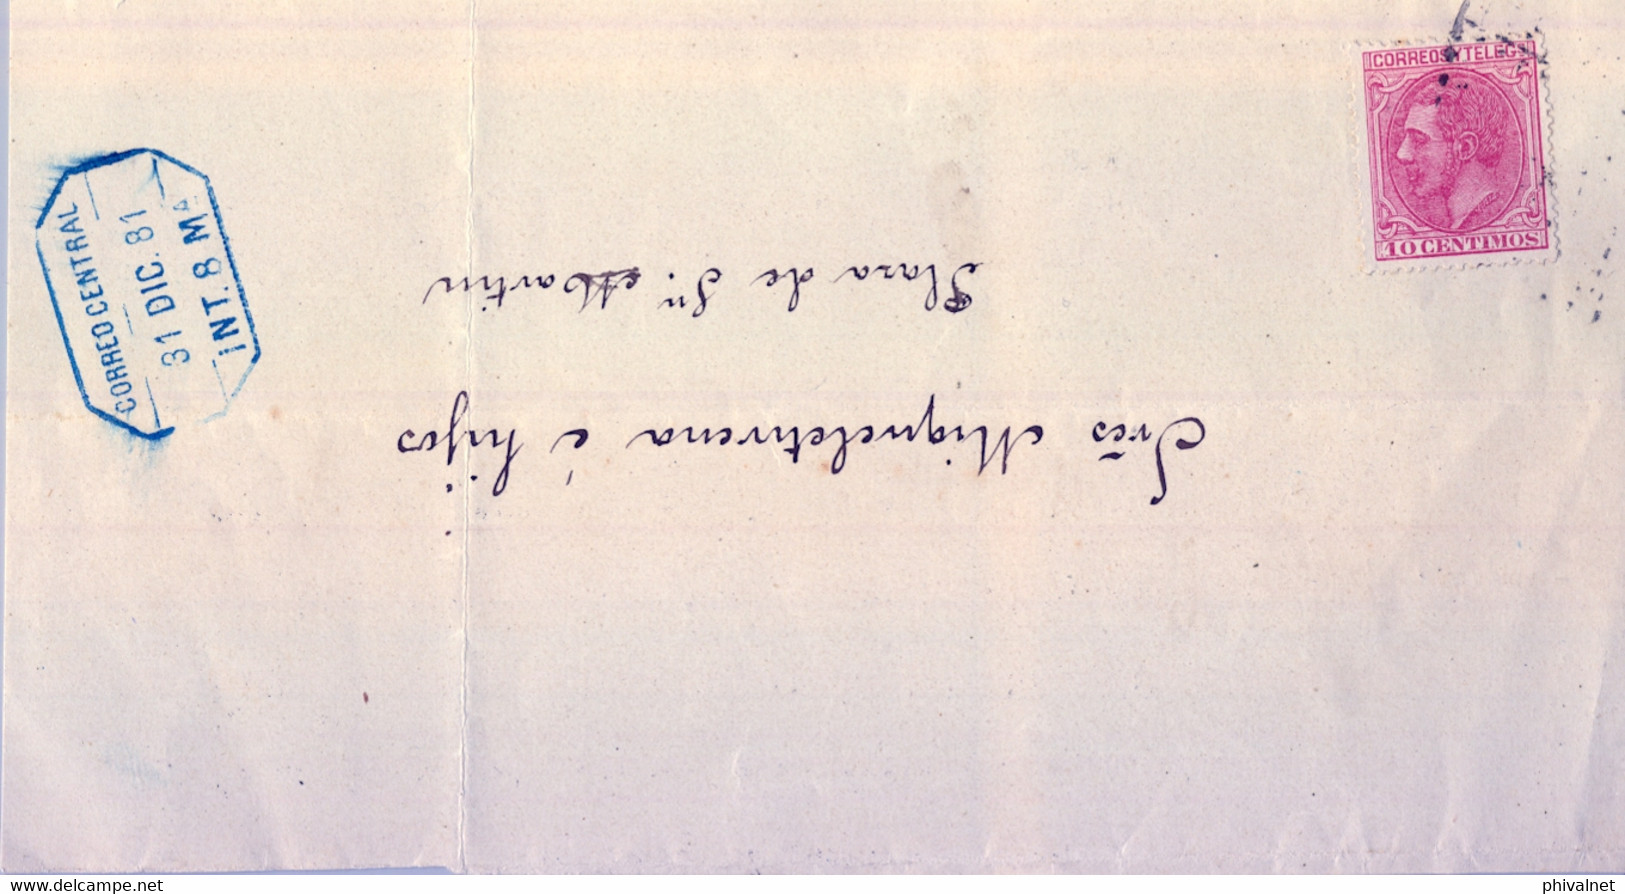 CORREOS Y TELEGS
10 CENTIMOS
CORREO CENTRAL
31 DIC. 81
INT. 8 Mª
Sres Migueletorena é hijos
Plaza de Sn. Martin
delcampe.net
phivalnet